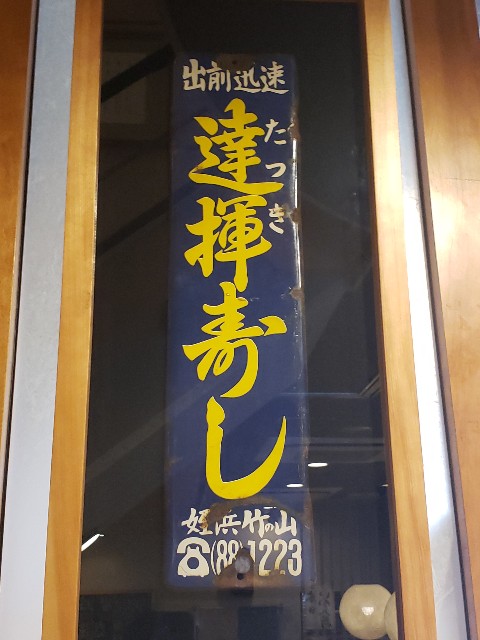 出前迅速
達揮寿し
たつき
姪浜竹の山
☎(88)1223